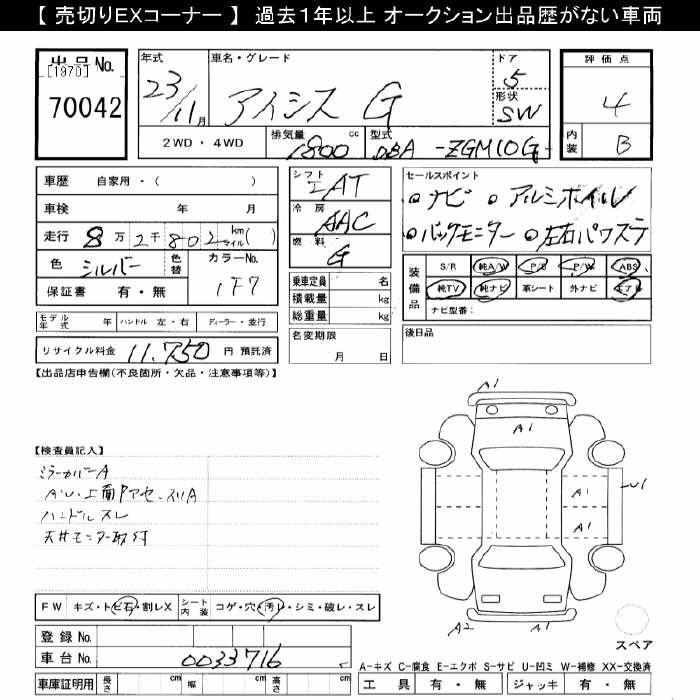 【 売切りEXコーナー 】 過去1年以上 オークション出品歴がない車両
出品No.
[1970]
70042
年式
車名・グレード
ドア
評価点
23/11月
アイシス G
5
形状
SW
4
2WD・4WD
排気量
1800 cc
型式
DBA -ZGM10G-
内装
B
車歴 自家用・( )
車検 年 月
走行 8万2千802 km マイル( )
色 シルバー 色替 カラーNo. 1F7
保証書 有・無
シフト IAT
冷房 AAC
燃料 G
乗車定員 名
積載量 kg
総重量 kg
セールスポイント
○ナビ ○アルミホイル
○バックモニター ○左右パワステ
装備品
S/R 純A/W P/S P/W ABS
純TV 純ナビ 革シート 外ナビ エアB
ナビ型番:
モデル年式 年 ハンドル 左・右 ディーラー・並行
名変期限
月 日
後日品
リサイクル料金 11,750 円 預託済
【出品店申告欄(不良箇所・欠品・注意事項等)】
【検査員記入】
ミラーカバーA
ハンドルスレ
天井モニター取付
A1
A1
A1
A1
U1
A2
A1
スペア
FW キズ・トビ石・割レX シート内装 コゲ・穴・汚レ・シミ・破レ・スレ
登録No.
車台No. 0033716
車庫証明用 長さ cm 幅 cm 高さ cm
A-キズ C-腐食 E-エクボ S-サビ U-凹ミ W-補修 XX-交換済
工具 有・無 ジャッキ 有・無